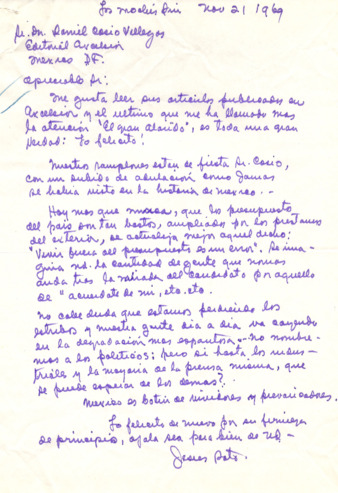 Los Mochis Sin Nov 21/1969
Sr. Dn. Daniel Cosio Villegas
Editorial Excelsior
Mexico DF.
Apreciable Sr:
Me gusta leer sus articulos publicados en
Excelsior y el ultimo que me ha llamado mas
la atención "El gran alarido", es toda una gran
verdad: Lo felicito!
Nuestros rampones estan de fiesta Sr. Cosio,
con un subido de adulación como jamas
se habia visto en la historia de mexico. -
Hoy mas que nunca, que los presupuestos
del país son tan bastos, ampliados por los prestamos
del exterior, se actualiza mejor aquel dicho:
"Vivir fuera del presupuesto es un error". Se ima-
gina ud. la cantidad de gente que
anda tras la mirada del candidato por aquello
de "acuerdate de mi, etc. etc.
No cabe duda que estamos perdiendo los
estribos y nuestra gente dia a dia va cayendo
en la degradación mas espantosa. - no nombre-
mos a los politicos; pero si hasta los indus-
triales y la mayoria de la prensa misma, que
se puede esperar de los demas?.
Mexico es botin de vividores y prevaricadores.
Lo felicito de nuevo por su firmeza
de principio, ojala sea para bien de Ud -
Jesus Soto.